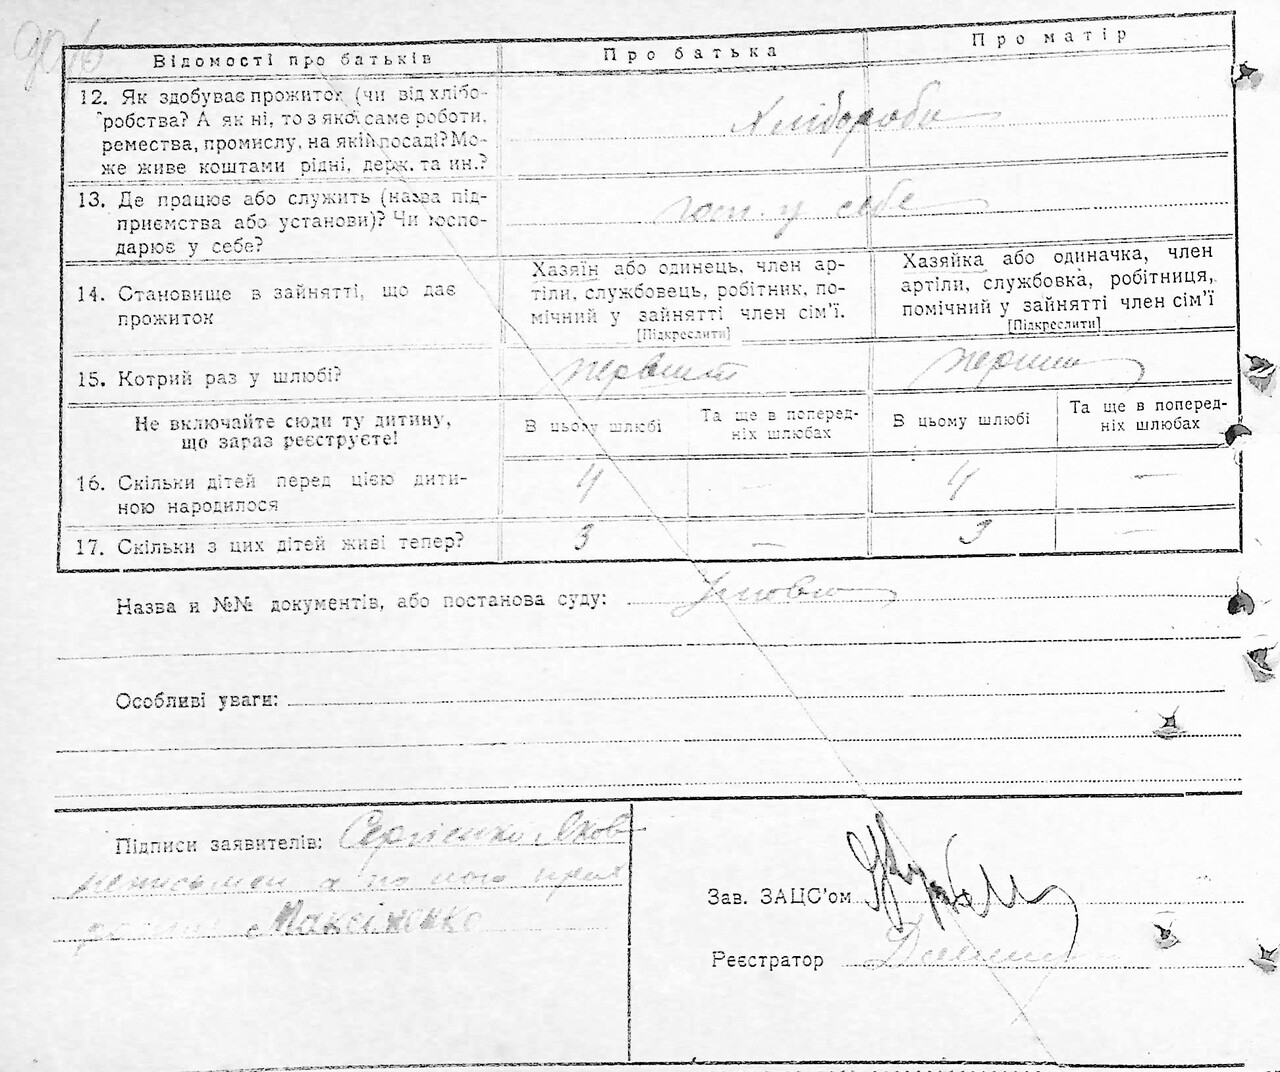 Відомості про батьків
Про батька
Про матір
12. Як здобуває прожиток (чи від хлібо-
робства? А як ні, то з якої саме роботи,
ремества, промислу, на якій посаді? Мо-
же живе коштами рідні, держ. та ин.?
Хлібороби
13. Де працює або служить (назва під-
приємства або установи)? Чи госпо-
дарює у себе?
госп. у себе
14. Становище в зайнятті, що дає
прожиток
Хазяїн або одинець, член ар-
тіли, службовець, робітник, по-
мічний у зайнятті член сім’ї.
[Підкреслити]
Хазяйка або одиначка, член
артіли, службовка, робітниця,
помічний у зайнятті член сім’ї
[Підкреслити]
15. Котрий раз у шлюбі?
Не включайте сюди ту дитину,
що зараз реєструєте!
В цьому шлюбі
Та ще в поперед-
ніх шлюбах
В цьому шлюбі
Та ще в поперед-
ніх шлюбах
16. Скільки дітей перед цією дити-
ною народилося
4 — 4 —
17. Скільки з цих дітей живі тепер?
3 — 3 —
Назва и №№ документів, або постанова суду:
Особливі уваги:
Підписи заявителів: Сергієнко Яков
Максіменко
Зав. ЗАЦС’ом
Реєстратор